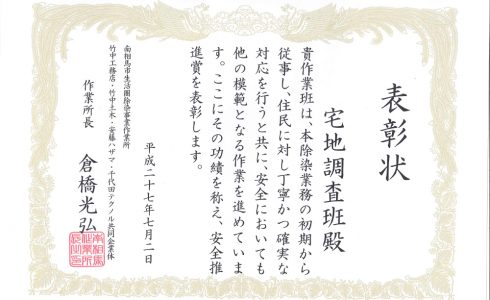 表彰状
宅地調査班殿
貴作業班は、本除染業務の初期から
従事し、住民に対し丁寧かつ確実な
対応を行うと共に、安全においても
他の模範となる作業を進めていま
す。ここにその功績を称え、安全推
進賞を表彰します。
平成二十七年七月二日
南相馬市生活圏除染事業作業所
竹中工務店・竹中土木・安藤ハザマ・千代田テクノル共同企業体
作業所長 倉橋光弘